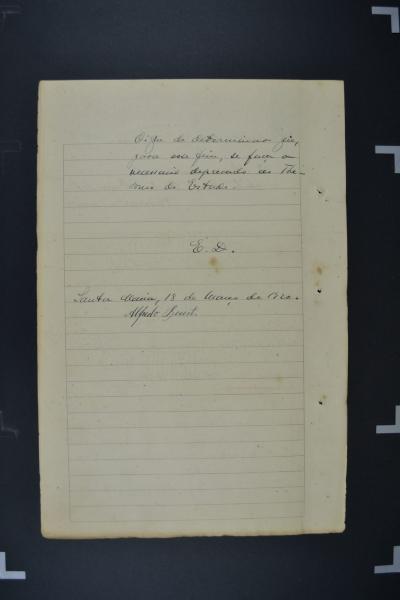 de determinar que,
para esse fim, se faça o
necessario deprecado ao The-
souro do Estado.
E. D.
Santa Maria, 18 de Março de
Alfredo